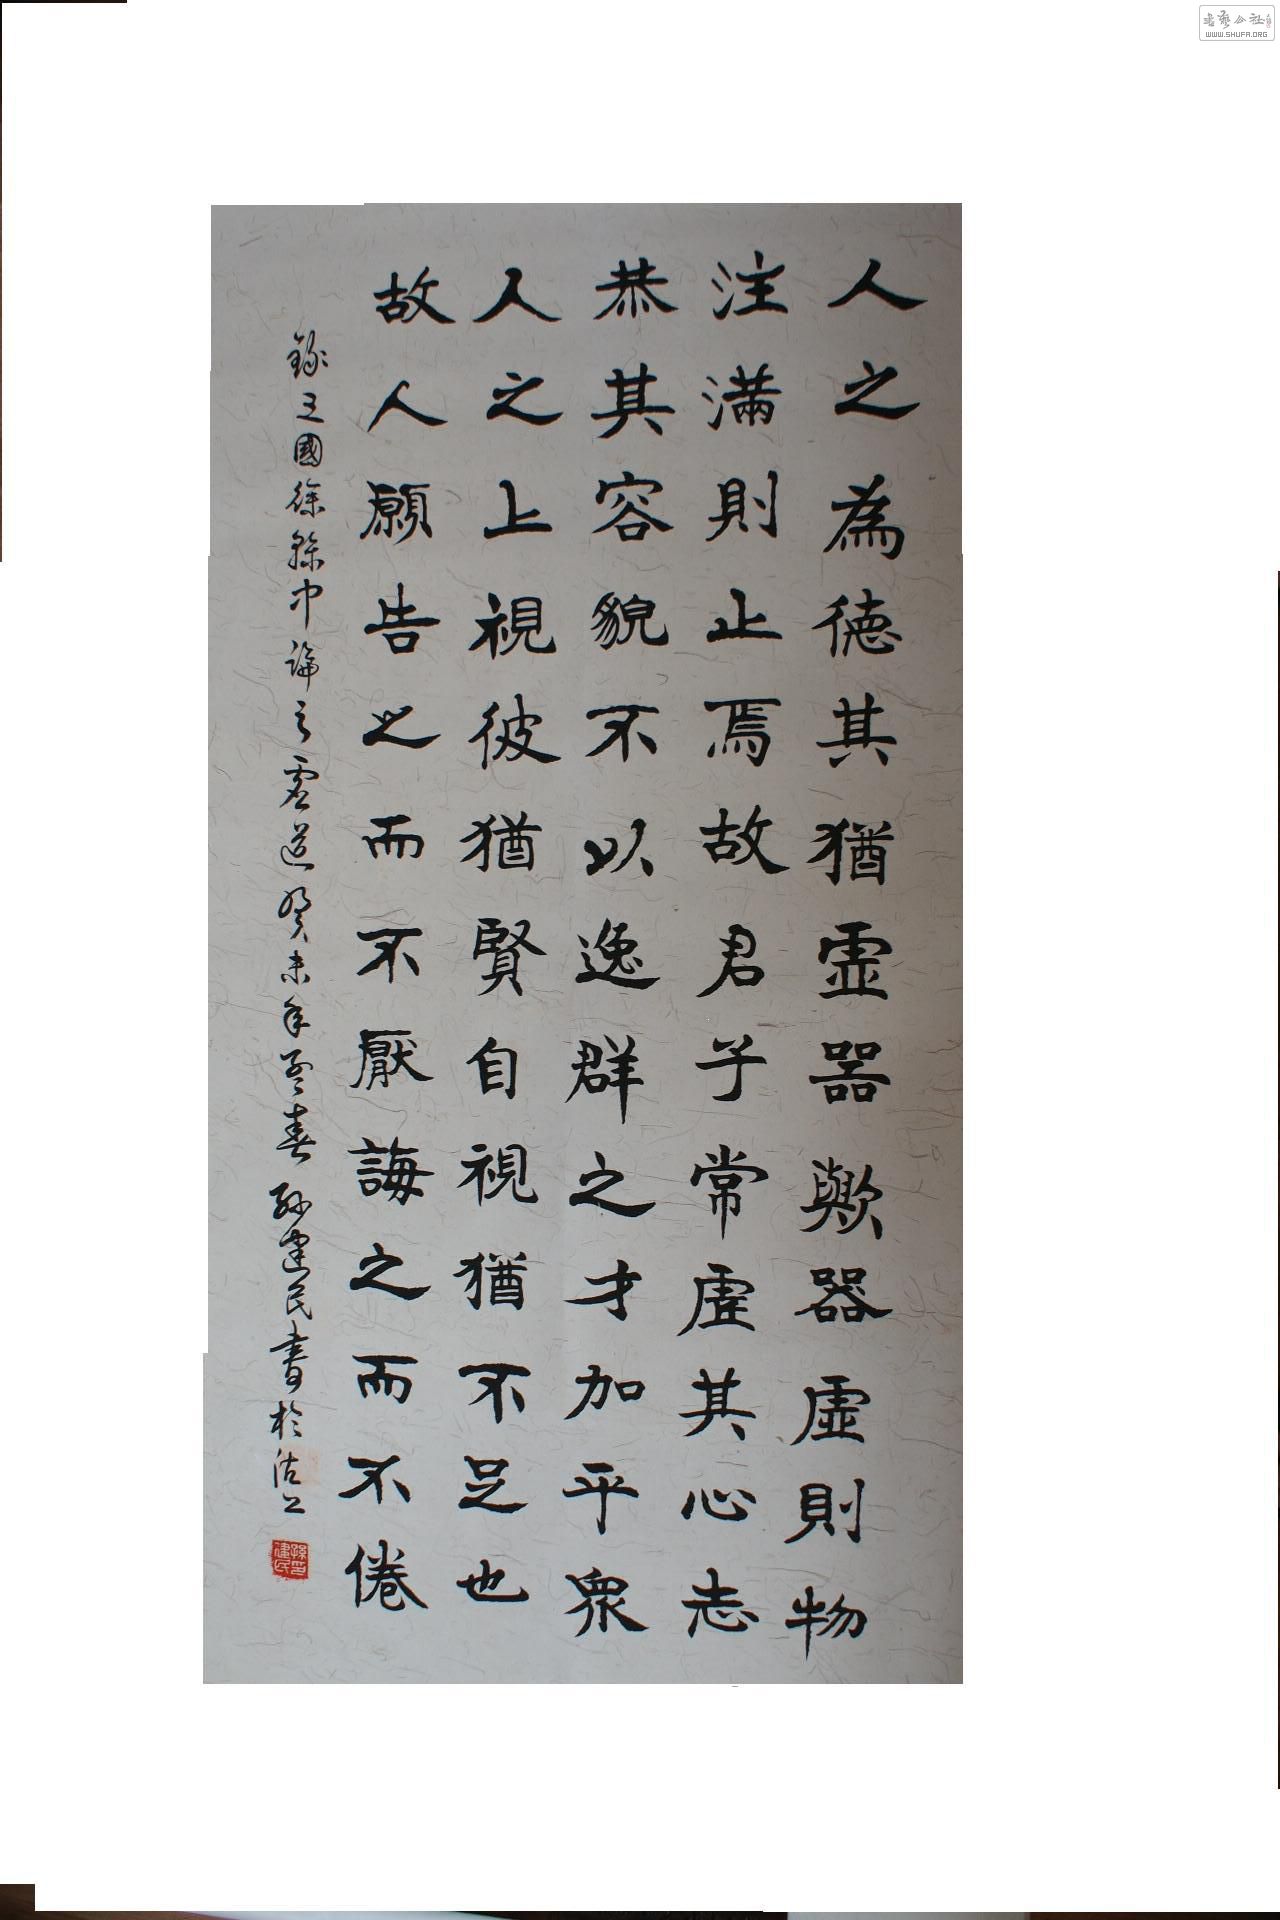 人之為德其猶虛器歟器虛則物
注滿則止焉故君子常虛其心志
恭其容貌不以逸群之才加乎衆
人之上視彼猶賢自視猶不足也
故人願告之而不厭誨之而不倦
錄三國徐幹中論之虛道癸未年孟春孫建民書於沽上
孫建民印
書藝公社
WWW.SHUFA.ORG